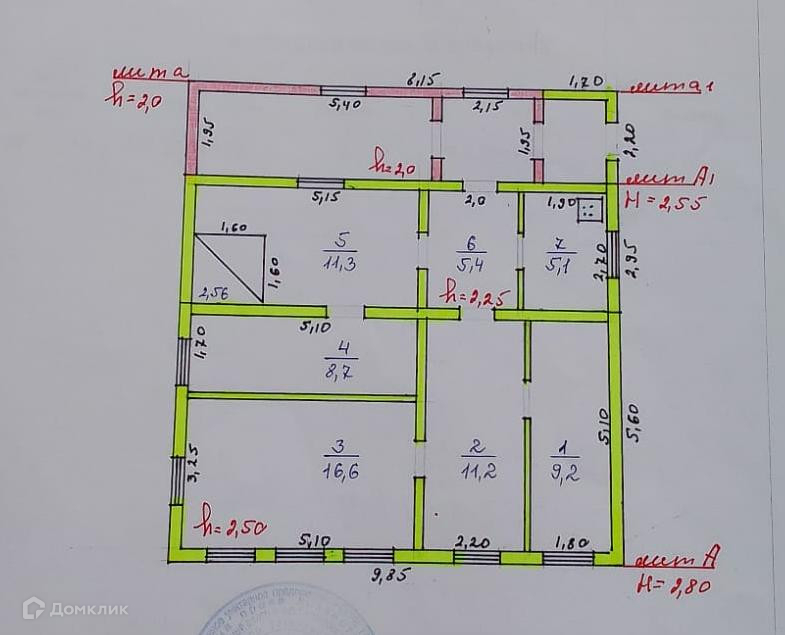 лит а
h=2,0
8,15
1,70
лит а1
5,40
2,15
1,95
1,95
2,20
h=2,0
лит А1
H=2,55
5,15
2,0
1,90
1,60
5
11,3
6
5,4
7
5,1
2,70
2,95
1,60
2,56
h=2,25
5,10
1,70
4
8,7
5,10
5,60
3,25
3
16,6
2
11,2
1
9,2
h=2,50
5,10
2,20
1,80
9,85
лит А
H=2,80
Домклик